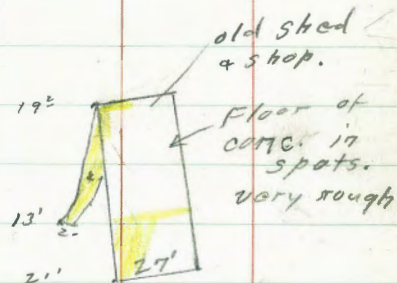 old shed
& shop.
19²
Floor of
conc. in
spots.
very rough
13'
2-
27'
2''